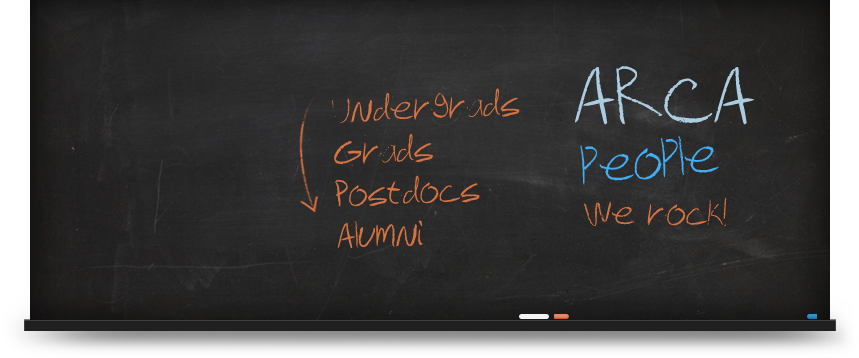 Undergrads
Grads
Postdocs
Alumni
ARCA
People
We rock!